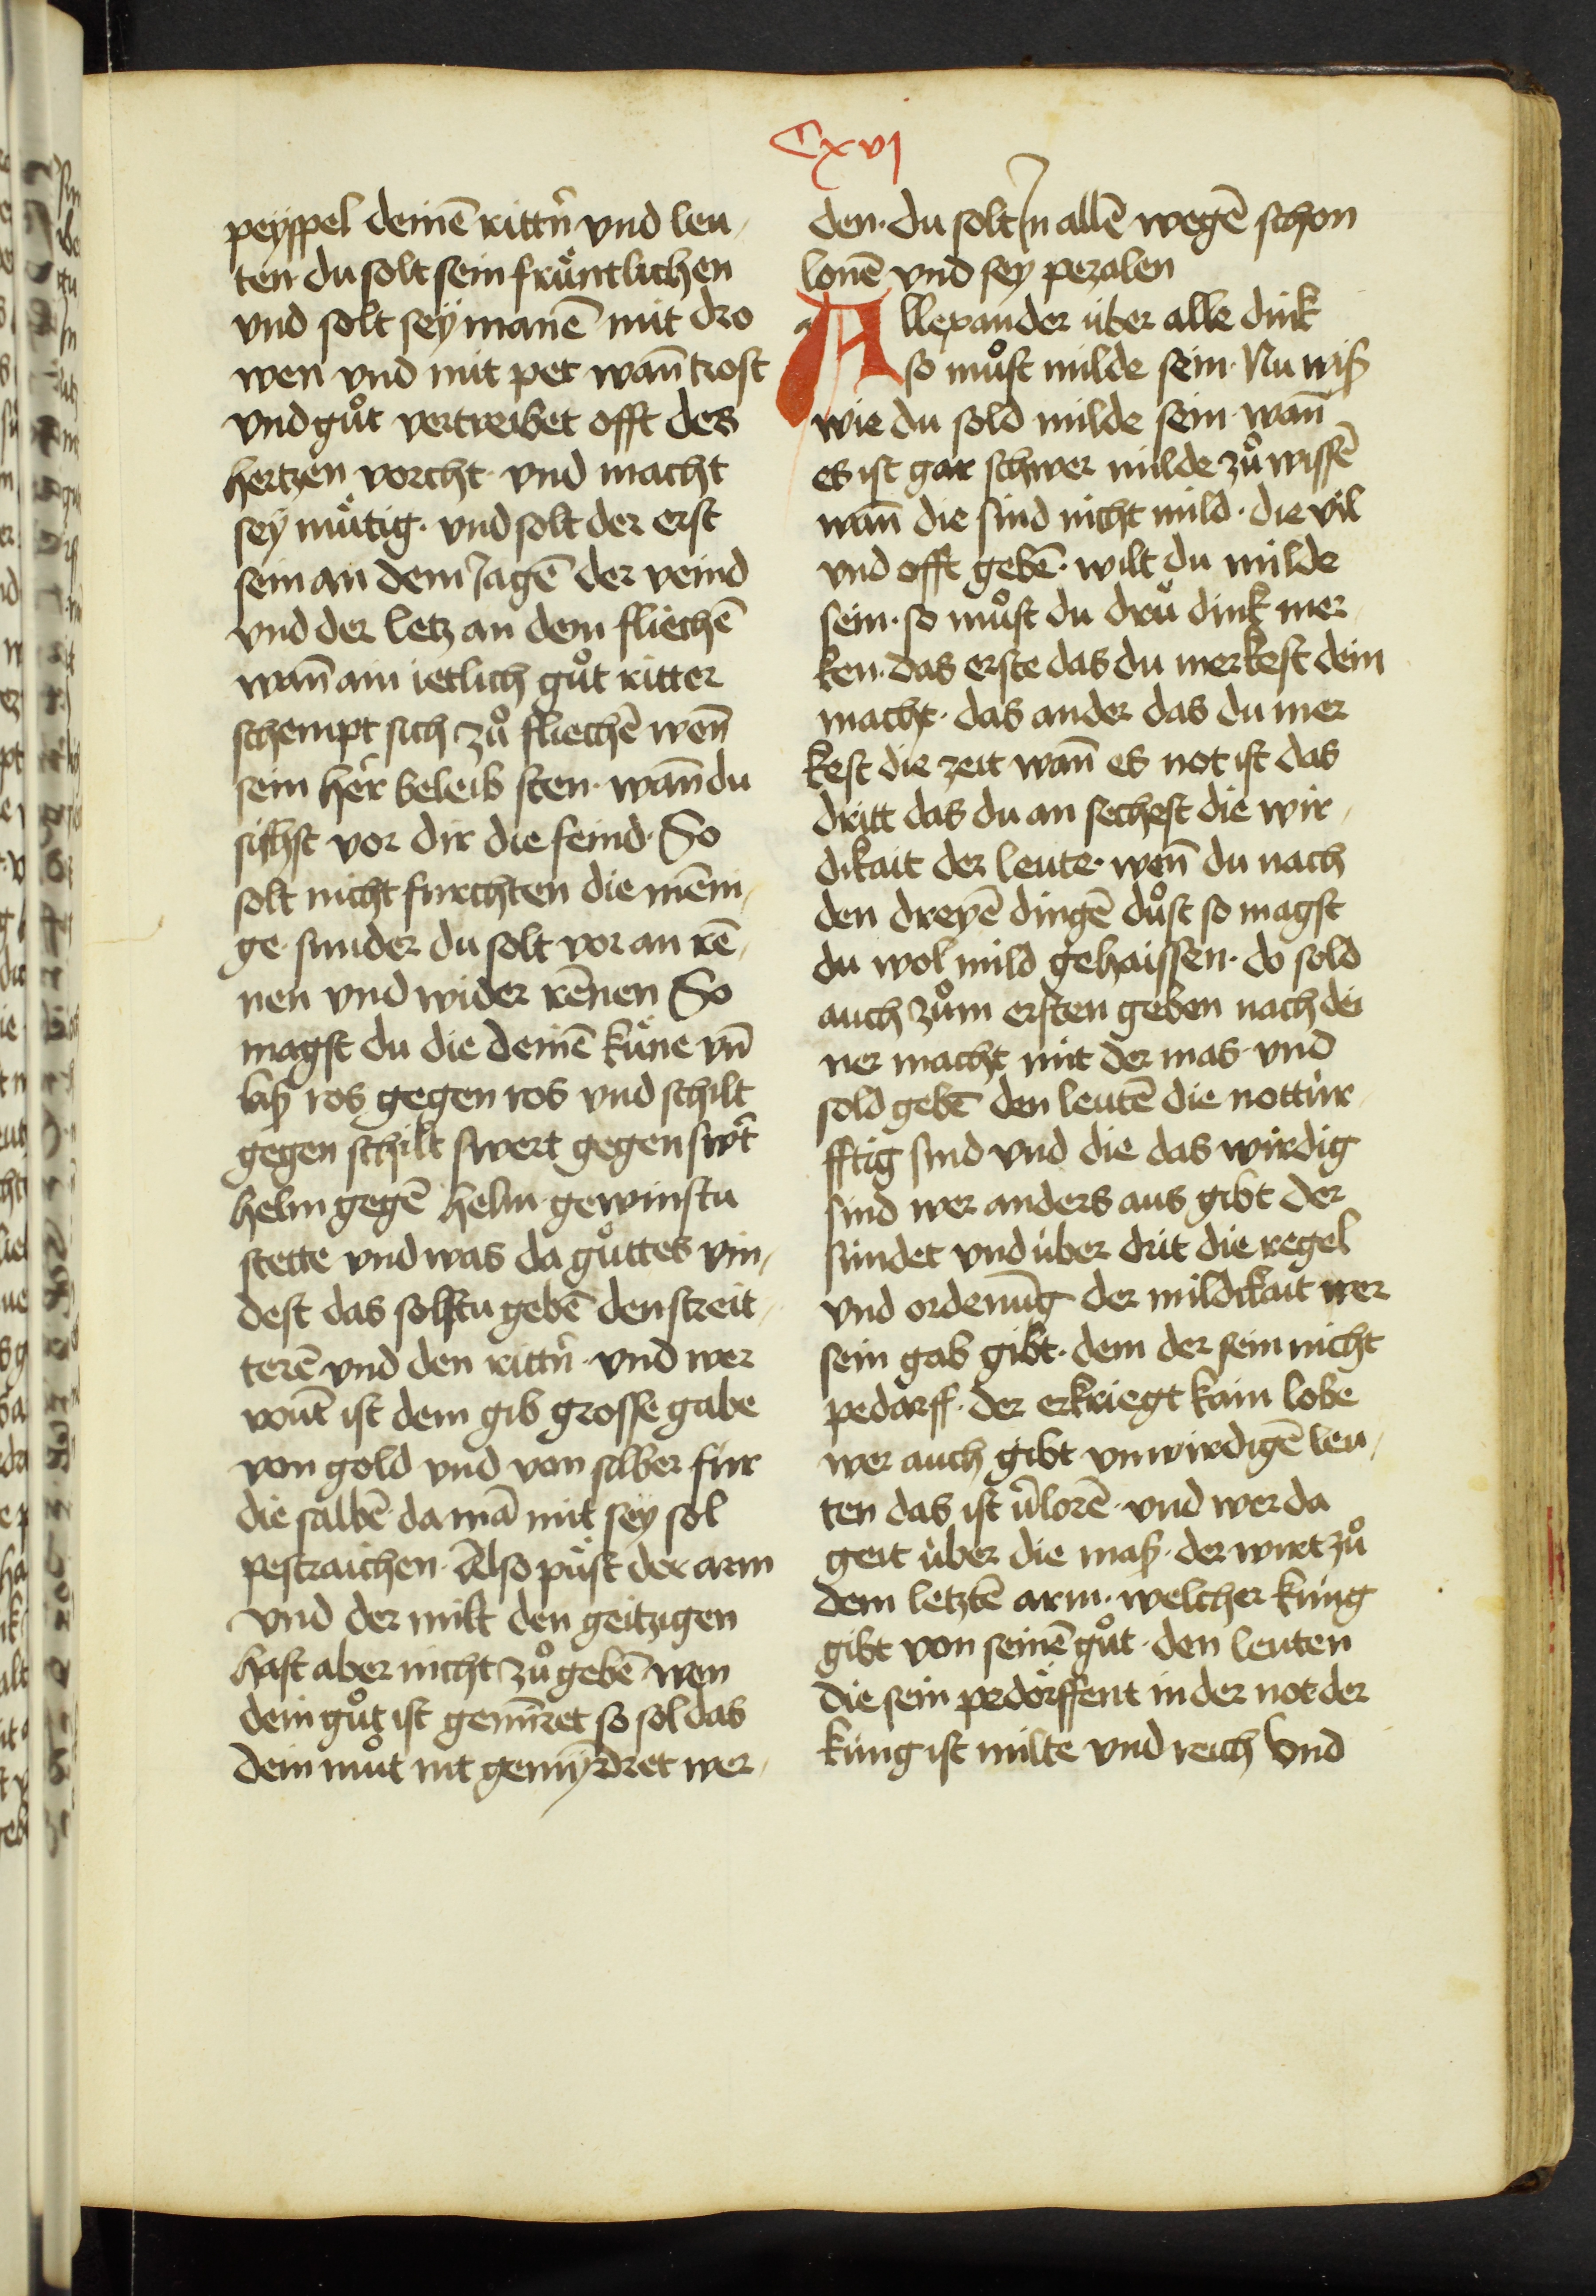 Cxvj
peÿspel deinē rittn̄ vnd leu-
ten du solt sein frůntlichen
vnd solt seÿ manē mit dro
wen vnd mit pet wan̄ trost
vnd gůt vertreibet offt des
hertzen vorcht · vnd macht
seÿ můtig · vnd solt der erst
sein an dem Jagē der veind
vnd der letz an dem fliechē
wan̄ ain ietlich gůt ritter
schempt sich zů fliechē wen̄
sein her̄ beleib sten · wan̄ du
sichst vor dir die feind · So
solt nicht furchten die mēni-
ge sunder du solt vor an rē-
nen vnd wider rēnen So
magst du die deinē küne vn̄
laß ros gegen ros vnd schilt
gegen schilt swert gegen swt̄
helm gegē helm gewinstu
stette vnd was da gůttes vin-
dest das solstu gebē den streit-
terē vnd den rittn̄ · vnd wer
vout̄ ist dem gib grosse gabe
von gold vnd von silber fur
die salbē da mā mit seÿ sol
pestraichen · Also půst der arm
vnd der milt den geitzigen
hast aber nicht zů gebē wen
dein gůt ist gemīret so sol das
dein můt nit gemÿndret wer-
den · du solt Jn allē wegē schon
lonē vnd seÿ pezalen
Allexander über alle dink
so můst milde sein · Nu wiß
wie du sold milde sein · wan̄
es ist gar schwer milde zů wissē
wan̄ die sind nicht mild · die vil
vnd offt gebē · wilt du milde
sein · so můst du drů dink mer-
ken · das erste das du merkest dein
macht · das ander das du mer
kest die zeit wan̄ es not ist das
dritt das du an sechest die wir-
dikait der leute · wen̄ du nach
den dreyē dingē důst so magst
du wol mild gehaissen · do sold
auch zům ersten geben nach dei
ner macht mit der mas · vnd
sold gebē den leutē die nottür-
fftig sind vnd die das wirdig
sind wer anders aus gibt der
sündet vnd über drit die regel
vnd ordenūg der mildikait wer
sein gab gibt · dem der sein nicht
pedarff · der erkriegt kain lobe
wer auch gibt vnwirdigē leu-
ten das ist v̄lorē · vnd wer da
geit über die maß · der wirt zů
dem letztē arm · welcher kunig
gibt von seinē gůt · den leuten
die sein pedörffent in der not der
kunig ist milte vnd reich Vnd